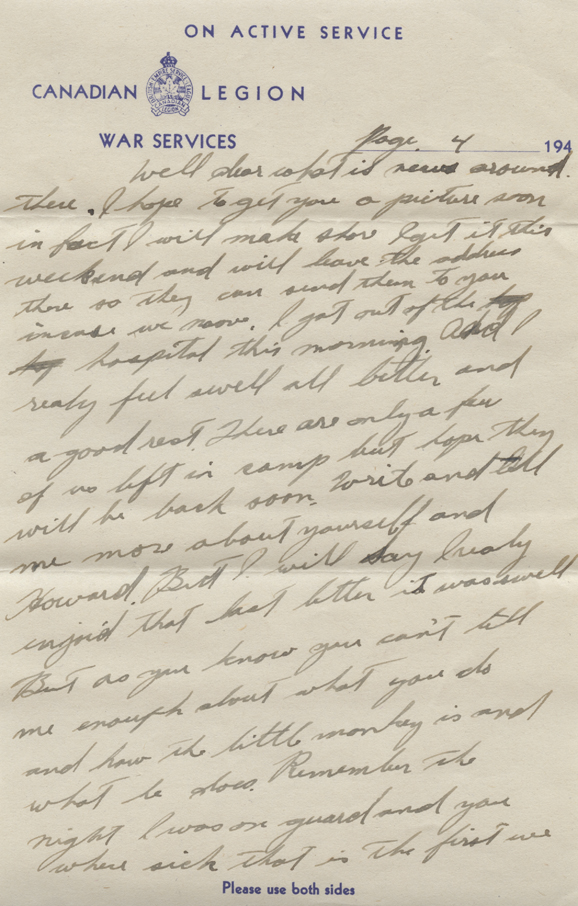 ON ACTIVE SERVICE
CANADIAN LEGION
WAR SERVICES
Page 4 194
Well dear what is news around
there. I hope to get you a picture soon
in fact I will make shore I get it this
weekend and will leave the address
there so they can send them to you
incase we move. I got out of the
hospital this morning And I
realy feel swell all better and
a good rest. There are only a few
of us left in camp but hope they
will be back soon. Write and tell
me more about yourself and
Howard. But I will say I realy
injoid that last letter it was swell
But as you know you can't tell
me enough about what you do
and how the little monkey is and
what he does. Remember the
night I was on guard and you
where sick that is the first we
Please use both sides